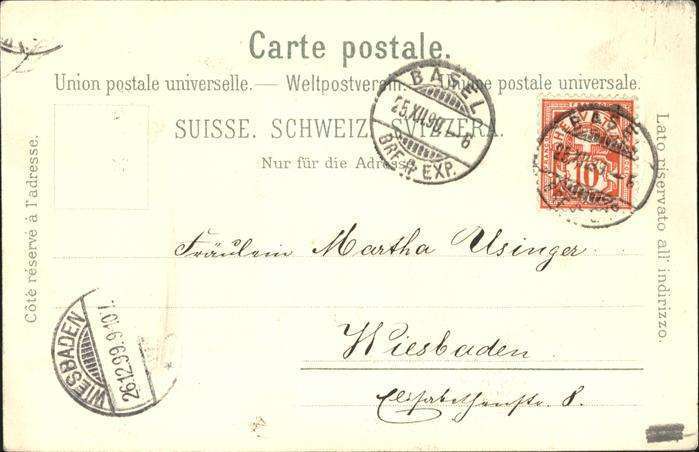 Carte postale.
Union postale universelle. — Weltpostverein. — Unione postale universale.
SUISSE. SCHWEIZ. SVIZZERA.
Nur für die Adresse.
Côté réservé à l'adresse.
Lato riservato all' indirizzo.
BASEL
25.XII.99. - 6
BRF. EXP.
HELVETIA
10
Fräulein Martha Usinger
Wiesbaden
Elisabethenstr. 8.
WIESBADEN
26.12.99. 9-10 V.